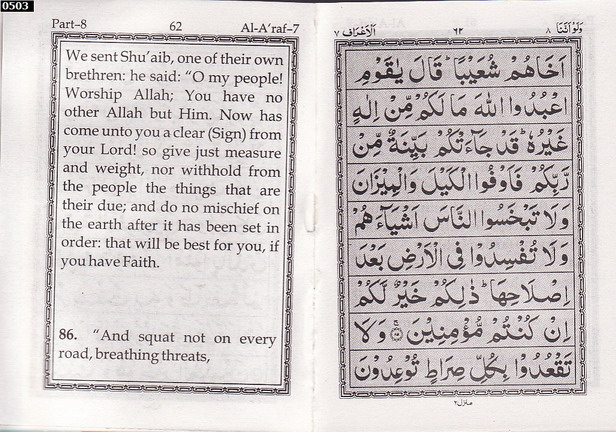 0503
Part–8 62 Al-A'raf–7
We sent Shu'aib, one of their own
brethren: he said: "O my people!
Worship Allah; You have no
other Allah but Him. Now has
come unto you a clear (Sign) from
your Lord! so give just measure
and weight, nor withhold from
the people the things that are
their due; and do no mischief on
the earth after it has been set in
order: that will be best for you, if
you have Faith.
86. "And squat not on every
road, breathing threats,
وَلَوْ اَنَّنَا ٨ ٦٢ اَلْاَعْرَاف ٧
اَخَاهُمْ شُعَيْبًا ؕ قَالَ يٰقَوْمِ
اعْبُدُوا اللّٰهَ مَا لَكُمْ مِّنْ اِلٰهٍ
غَيْرُهٗ ؕ قَدْ جَآءَتْكُمْ بَيِّنَةٌ مِّنْ
رَّبِّكُمْ فَاَوْفُوا الْكَيْلَ وَالْمِيْزَانَ
وَلَا تَبْخَسُوا النَّاسَ اَشْيَآءَهُمْ
وَلَا تُفْسِدُوْا فِى الْاَرْضِ بَعْدَ
اِصْلَاحِهَا ؕ ذٰلِكُمْ خَيْرٌ لَّكُمْ
اِنْ كُنْتُمْ مُّؤْمِنِيْنَ ۝٨٥ وَلَا
تَقْعُدُوْا بِكُلِّ صِرَاطٍ تُوْعِدُوْنَ
منزل ٢